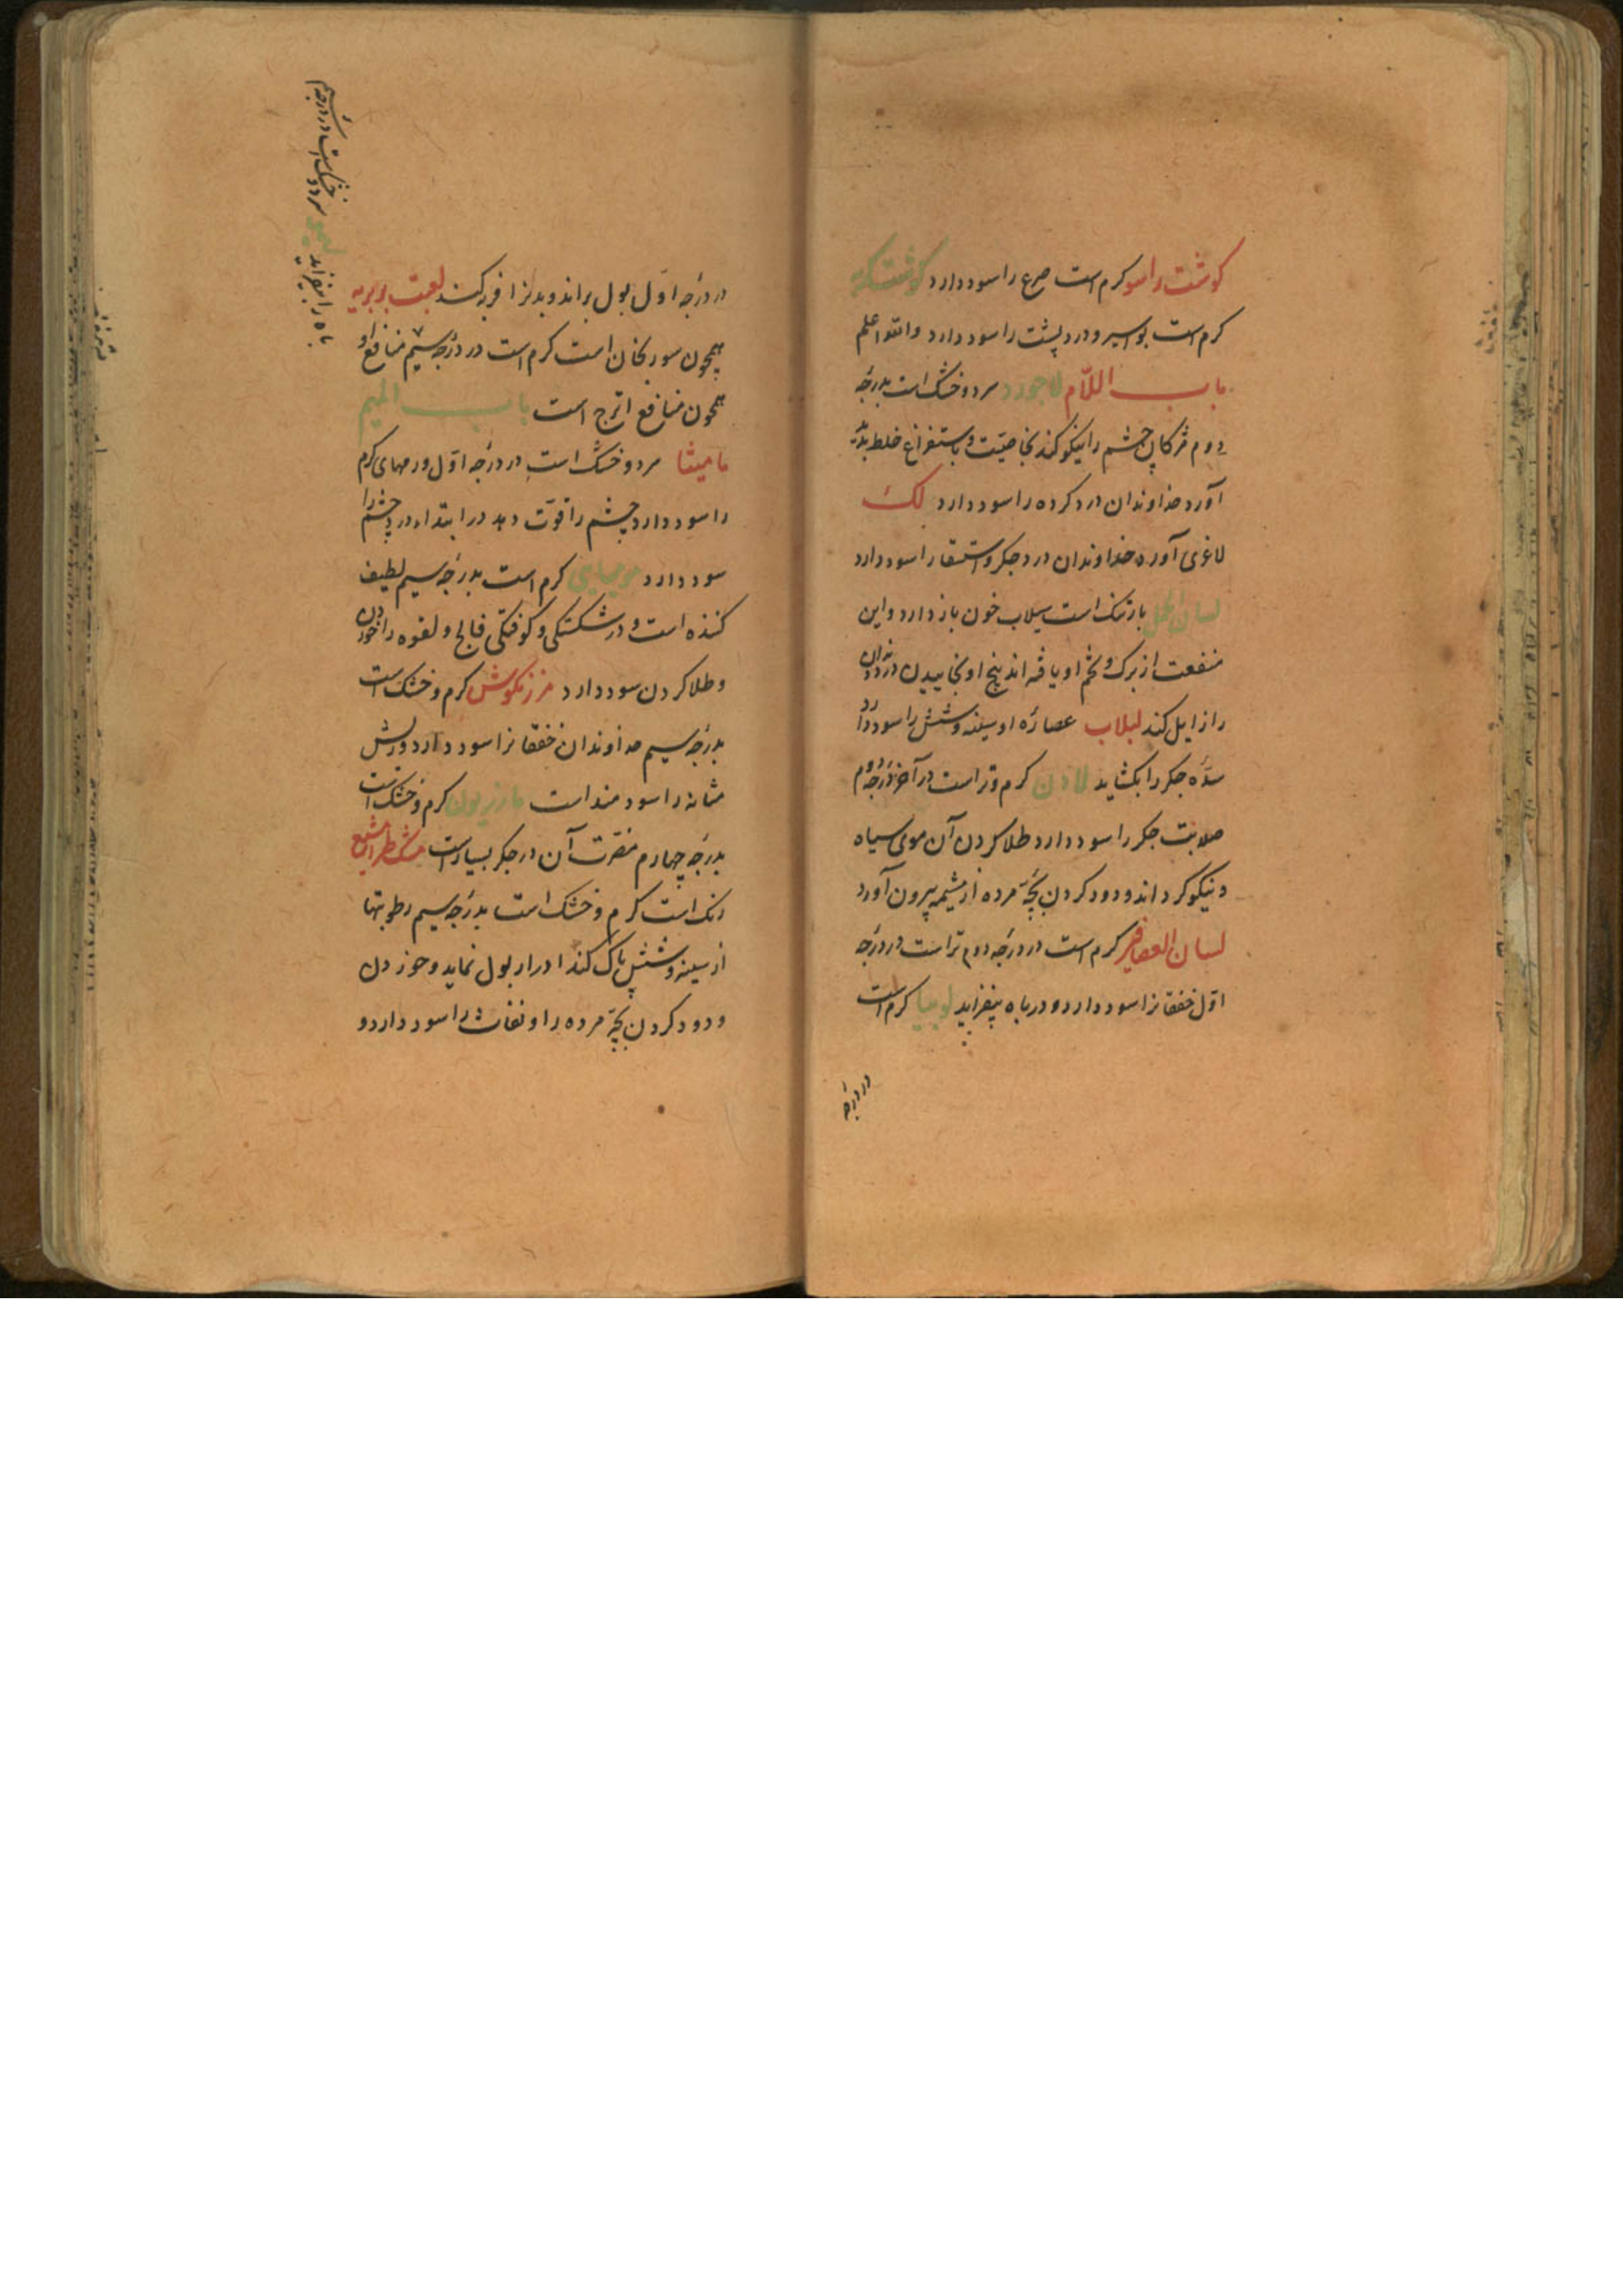 کوشت راسو کرم است صرع را سود دارد کوشت
کرم است بواسیر و درد پشت را سود دارد والله اعلم
باب اللّام لاجورد سرد و خشک است بدرجه
دوم مژکان چشم را نیکو کند بخاصیّت و باستفراغ خلط بد
آورد خداوندان درد کرده را سود دارد لک
لاغری آورد خداوندان درد جکر و استسقا را سود دارد
لسان الحمل بارتنک است سیلاب خون باز دارد و این
منفعت از برک و تخم او یافته اند بیخ او بخاییدن درد دندان
را زایل کند لبلاب عصاره او سینه و شش را سود دارد
سدّه جکر را بکشاید لادن کرم و تر است در آخر درجه دوم
صلابت جکر را سود دارد طلا کردن آن موی سیاه
و نیکو کرداند و دود کردن بچّه مرده از مشیمه بیرون آورد
لسان العصافیر کرم است در درجه دوم تر است در درجه
اوّل خفقانرا سود دارد و در باه بیفزاید لوبیا کرم است
در درجه
در درجه اوّل بول براند و بدنرا فربه کند لعبت بربریه
همچون سورنجان است کرم است در درجه سیّم منافع او
همچون منافع اترج است باب المیم
مامیثا سرد و خشک است در درجه اوّل ورمهای کرم
را سود دارد چشم را قوّت دهد در ابتداء درد چشم را
سود دارد مومیایی کرم است بدرجه سیم لطیف
کننده است و در شکستکی و کوفتکی فالج و لقوه را خوردن
و طلا کردن سود دارد مرزنکوش کرم و خشک است
بدرجه سیم خداوندان خفقانرا سود دارد و ریش
مثانه را سودمند است مازریون کرم و خشک است
بدرجه چهارم مضرّت آن در جکر بسیار است مشکطرامشیع
رنک است کرم و خشک است بدرجه سیم رطوبتها
از سینه و شش پاک کند ادرار بول نماید و خوردن
و دود کردن بچّه مرده را و را سود دارد و
لیمو سرد و خشک است در درجه سیّم
باه را بیفزاید